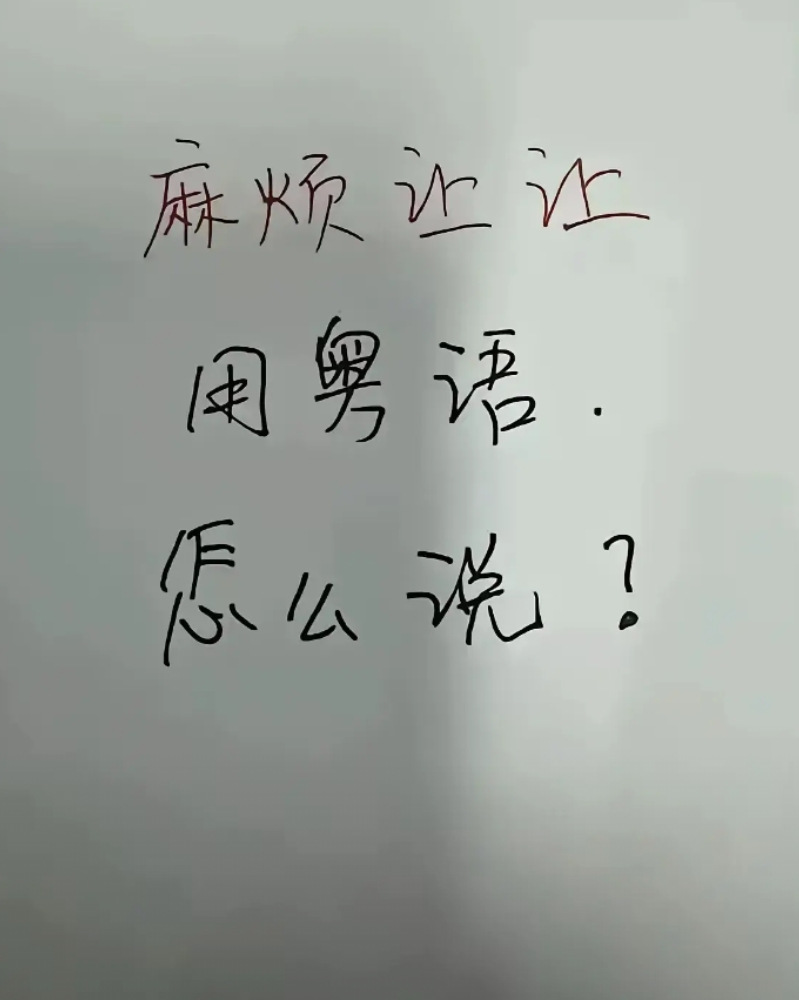 麻烦让让
用粤语.
怎么说?